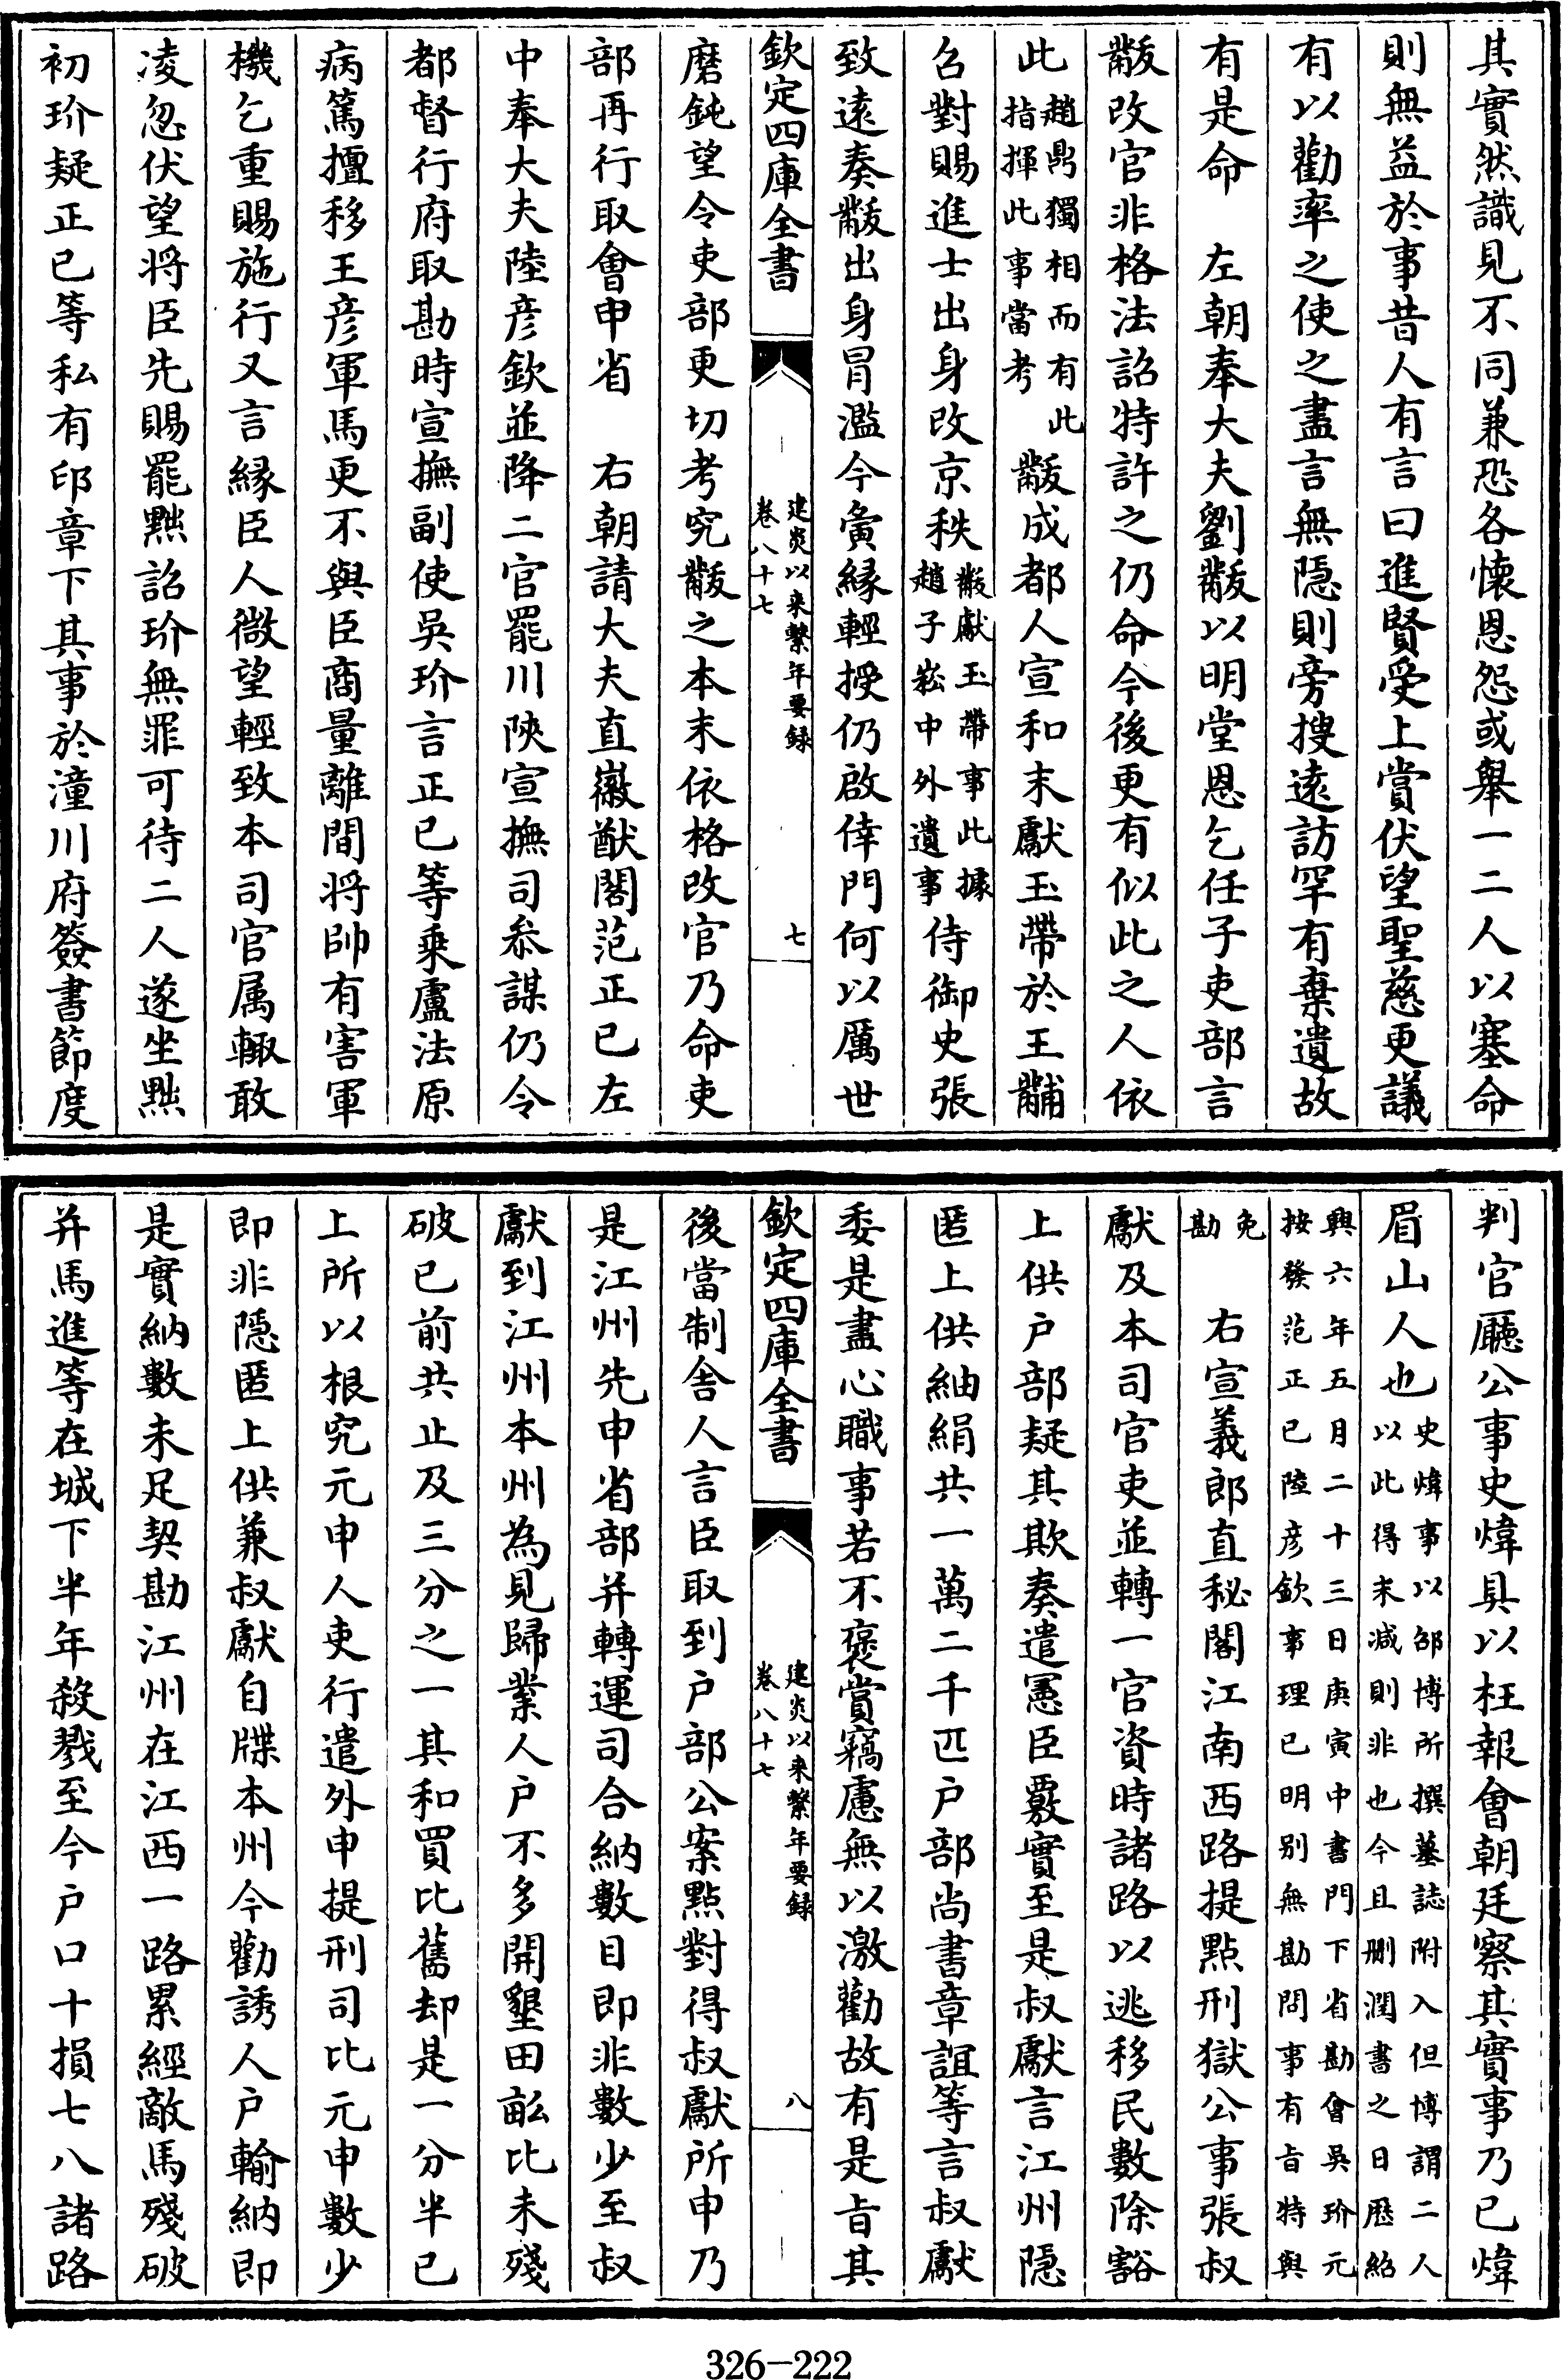 其實然識見不同兼恐各懐恩怨或舉一二人以塞命
則無益於事昔人有言曰進賢受上賞伏望聖慈更議
有以勸率之使之盡言無隠則旁搜遠訪罕有棄遺故
有是命　左朝奉大夫劉黻以明堂恩乞任子吏部言
黻改官非格法詔特許之仍命今後更有似此之人依
此趙鼎獨相而有此指揮此事當考黻成都人宣和末獻玉帶於王黼
召對賜進士出身改京秩黻獻玉帶事此據趙子崧中外遺事侍御史張
致遠奏黻出身冐濫今夤縁輕授仍啟倖門何以厲世
欽定四庫全書
建炎以來繫年要録
卷八十七
七
磨鈍望令吏部更切考究黻之本末依格改官乃命吏
部再行取會申省　右朝請大夫直徽猷閣范正已左
中奉大夫陸彦欽並降二官罷川陜宣撫司叅謀仍令
都督行府取勘時宣撫副使吳玠言正已等乘盧法原
病篤擅移王彦軍馬更不與臣商量離間将帥有害軍
機乞重賜施行又言縁臣人微望輕致本司官属輙敢
凌忽伏望将臣先賜罷黜詔玠無罪可待二人遂坐黜
初玠疑正已等私有印章下其事於潼川府簽書節度
判官廳公事史煒具以枉報會朝廷察其實事乃已煒
眉山人也史煒事以邵博所撰墓誌附入但博謂二人以此得末减則非也今且删潤書之日厯紹
興六年五月二十三日庚寅中書門下省勘會吳玠元按發范正已陸彦欽事理已明别無勘問事有旨特與
免勘　右宣義郎直秘閣江南西路提點刑獄公事張叔
獻及本司官吏並轉一官資時諸路以逃移民數除豁
上供户部疑其欺奏遣憲臣覈實至是叔獻言江州隠
匿上供紬絹共一萬二千匹户部尚書章誼等言叔獻
委是盡心職事若不褒賞竊慮無以激勸故有是旨其
欽定四庫全書
建炎以來繫年要録
卷八十七
八
後當制舍人言臣取到户部公案點對得叔獻所申乃
是江州先申省部并轉運司合納數目即非數少至叔
獻到江州本州為見歸業人户不多開墾田畝比未殘
破已前共止及三分之一其和買比舊却是一分半已
上所以根究元申人吏行遣外申提刑司比元申數少
即非隠匿上供兼叔獻自牒本州今勸誘人户輸納即
是實納數未足契勘江州在江西一路累經敵馬殘破
并馬進等在城下半年殺戮至今户口十損七八諸路
326-222